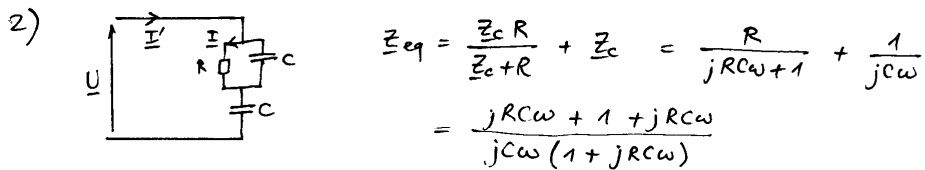 2)
I' I
R C
U
C
Z_eq = Z_c R / (Z_c + R) + Z_c = R / (jRCω + 1) + 1 / jCω
= (jRCω + 1 + jRCω) / (jCω (1 + jRCω))